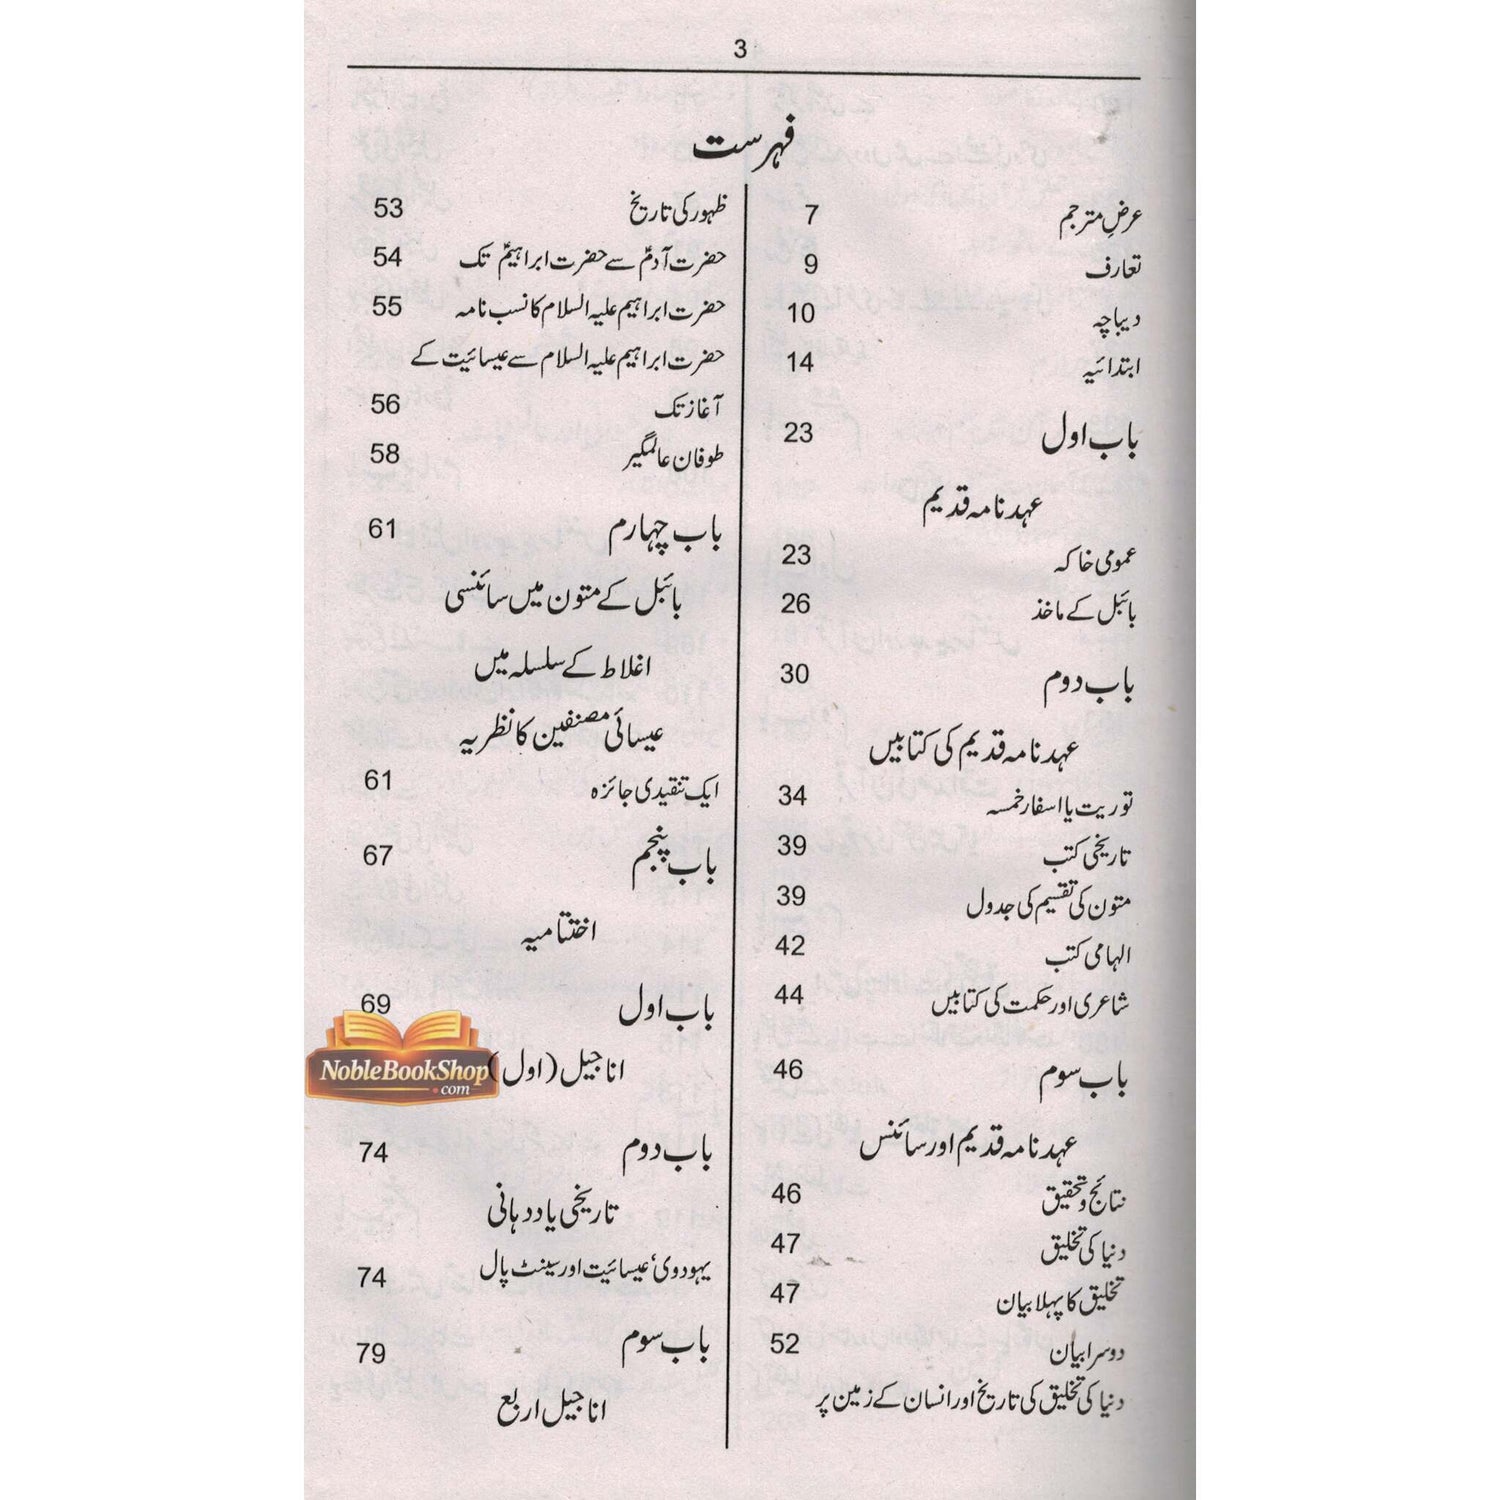 3
فہرست
عرضِ مترجم 7
تعارف 9
دیباچہ 10
ابتدائیہ 14
باب اول 23
عہد نامہ قدیم
عمومی خاکہ 23
بائبل کے ماخذ 26
باب دوم 30
عہد نامہ قدیم کی کتابیں
توریت یا اسفار خمسہ 34
تاریخی کتب 39
متون کی تقسیم کی جدول 39
الہامی کتب 42
شاعری اور حکمت کی کتابیں 44
باب سوم 46
عہد نامہ قدیم اور سائنس
نتائج و تحقیق 46
دنیا کی تخلیق 47
تخلیق کا پہلا بیان 47
دوسرا بیان 52
دنیا کی تخلیق کی تاریخ اور انسان کے زمین پر
ظہور کی تاریخ 53
حضرت آدمؑ سے حضرت ابراہیمؑ تک 54
حضرت ابراہیم علیہ السلام کا نسب نامہ 55
حضرت ابراہیم علیہ السلام سے عیسائیت کے
آغاز تک 56
طوفان عالمگیر 58
باب چہارم 61
بائبل کے متون میں سائنسی
اغلاط کے سلسلہ میں
عیسائی مصنفین کا نظریہ
ایک تنقیدی جائزہ 61
باب پنجم 67
اختتامیہ
باب اول 69
اناجیل (اول)
باب دوم 74
تاریخی یاددہانی
یہودوی، عیسائیت اور سینٹ پال 74
باب سوم 79
اناجیل اربع
NobleBookShop
.com